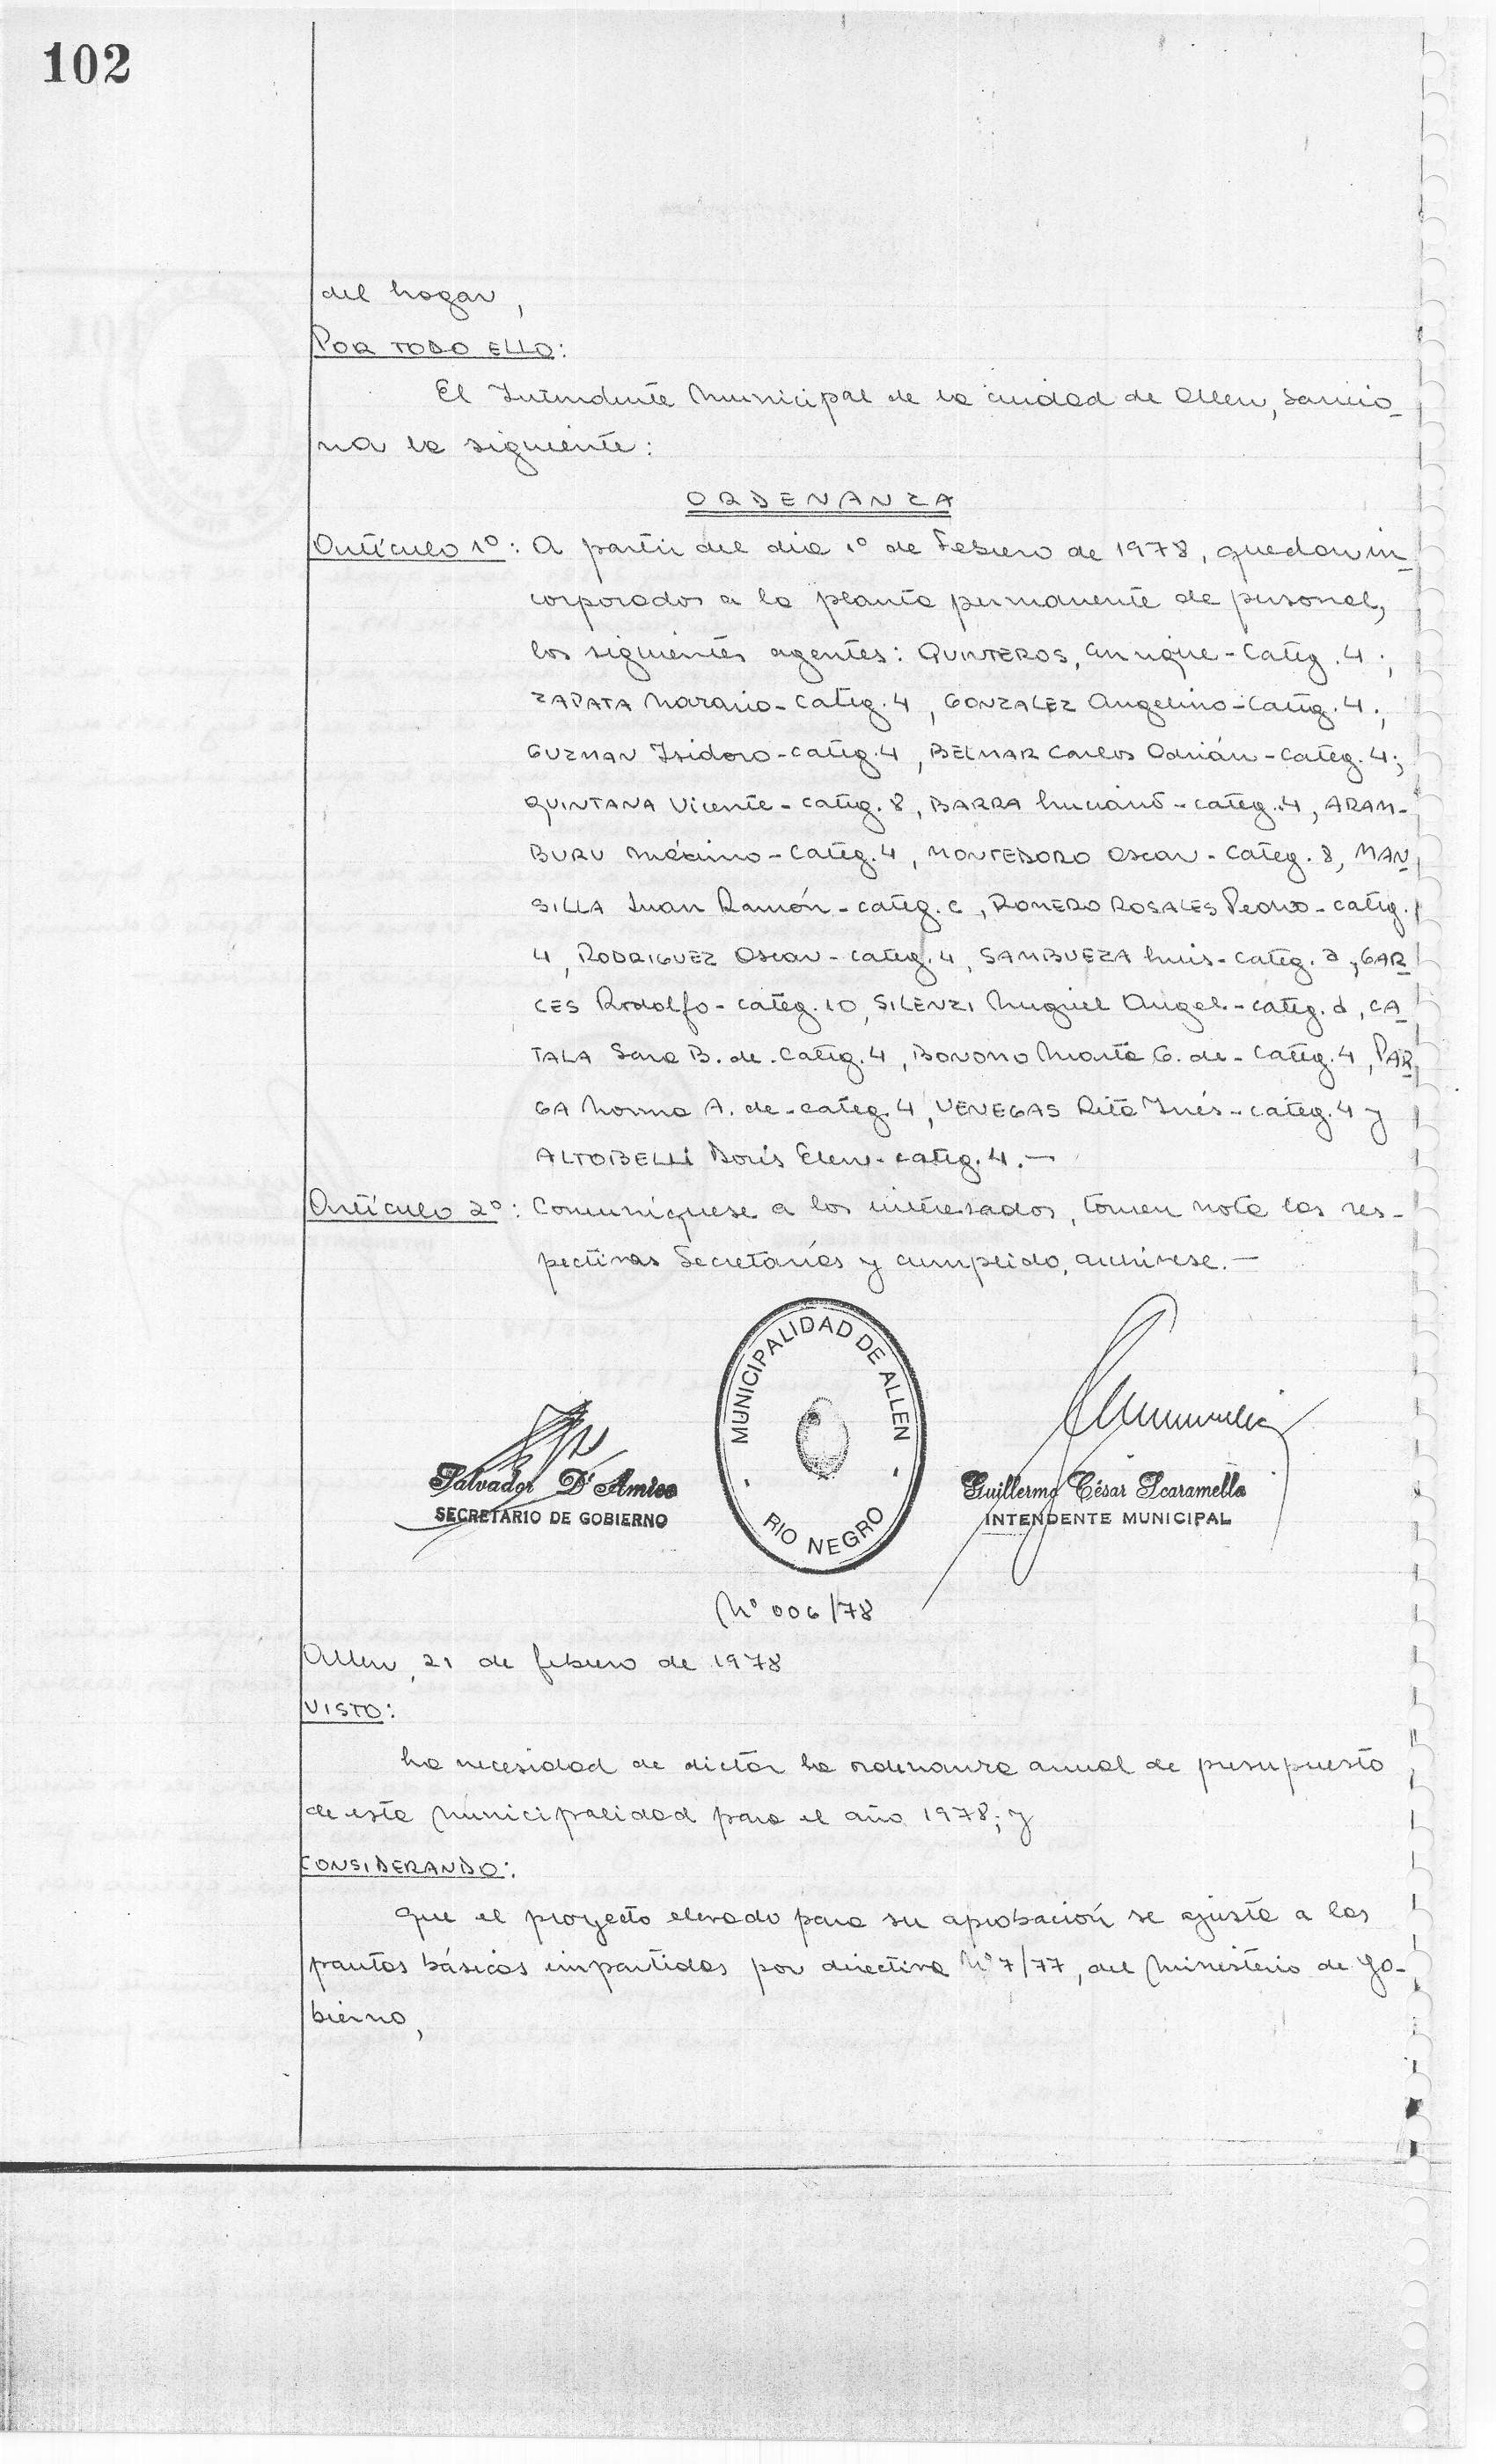 102
del hogar,
POR TODO ELLO:
El Intendente Municipal de la ciudad de Allen, sancio-
na la siguiente:
ORDENANZA
Artículo 1º: A partir del día 1º de Febrero de 1978, quedan in-
corporados a la planta permanente de personal,
los siguientes agentes: QUINTEROS, Enrique - Categ. 4;
ZAPATA Nazario - Categ. 4, GONZALEZ Angelino - Categ. 4;
GUZMAN Isidoro - categ. 4, BELMAR Carlos Adrián - Categ. 4;
QUINTANA Vicente - categ. 8, BARRA Luciano - categ. 4, ARAM-
BURU Máximo - Categ. 4, MONTEDORO Oscar - Categ. 8, MAN-
SILLA Juan Ramón - categ. c, ROMERO ROSALES Pedro - categ.
4, RODRIGUEZ Oscar - categ. 4, SAMBUEZA Luis - categ. a, GAR-
CES Rodolfo - categ. 10, SILENZI Miguel Angel - categ. d, CA-
TALA Sara B. de - Categ. 4, BONOMO Marta G. de - Categ. 4, PAR-
GA Norma A. de - categ. 4, VENEGAS Rita Inés - categ. 4 y
ALTOBELLI Doris Elen - categ. 4. —
Artículo 2º: Comuníquese a los interesados, tomen nota las res-
pectivas Secretarías y cumplido, archívese. —
MUNICIPALIDAD DE ALLEN
RIO NEGRO
Salvador D'Amico
SECRETARIO DE GOBIERNO
Guillermo César Scaramella
INTENDENTE MUNICIPAL
Nº 006/78
Allen, 21 de febrero de 1978
VISTO:
La necesidad de dictar la ordenanza anual de presupuesto
de esta Municipalidad para el año 1978; y
CONSIDERANDO:
Que el proyecto elevado para su aprobación se ajusta a las
pautas básicas impartidas por directiva Nº 7/77, del Ministerio de Go-
bierno,